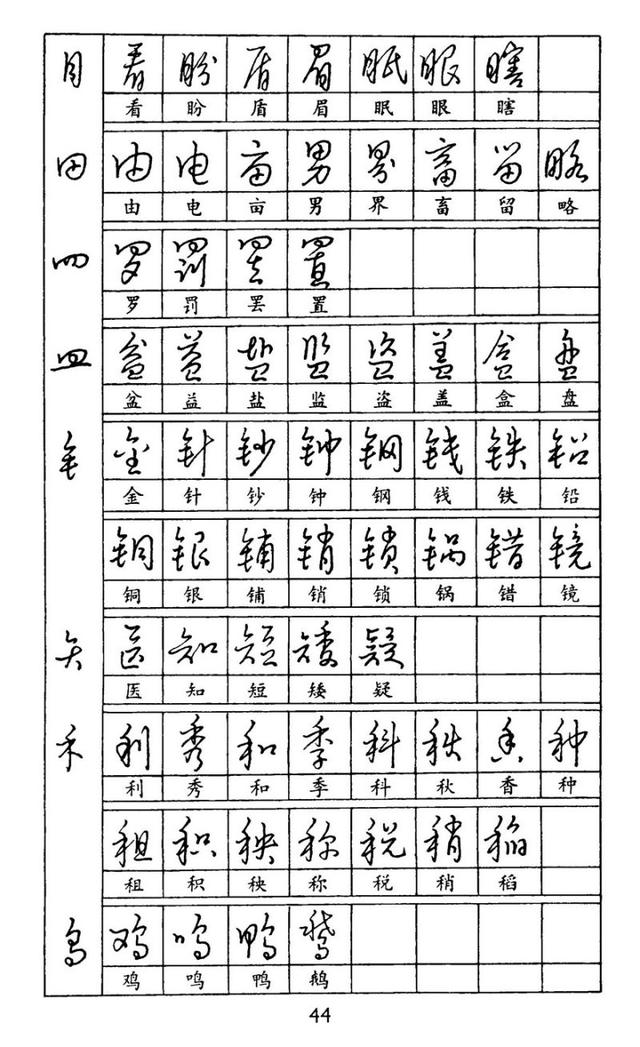 目 看 盼 盾 眉 眠 眼 瞎
看 盼 盾 眉 眠 眼 瞎
田 由 电 亩 男 界 畜 留 略
由 电 亩 男 界 畜 留 略
四 罗 罚 罢 置
罗 罚 罢 置
皿 盆 益 盐 监 盗 盖 盒 盘
盆 益 盐 监 盗 盖 盒 盘
钅 金 针 钞 钟 钢 钱 铁 铅
金 针 钞 钟 钢 钱 铁 铅
铜 银 铺 销 锁 锅 错 镜
铜 银 铺 销 锁 锅 错 镜
矢 医 知 短 矮 疑
医 知 短 矮 疑
禾 利 秀 和 季 科 秋 香 种
利 秀 和 季 科 秋 香 种
租 积 秧 称 税 稍 稻
租 积 秧 称 税 稍 稻
鸟 鸡 鸣 鸭 鹅
鸡 鸣 鸭 鹅
44